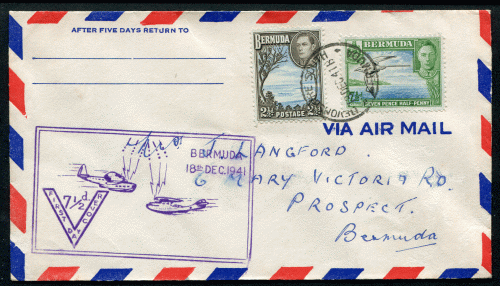 AFTER FIVE DAYS RETURN TO
BERMUDA
2½ POSTAGE 2½
BERMUDA
SEVEN PENCE HALF-PENNY
VIA AIR MAIL
BERMUDA
18th DEC. 1941
7½d
LANGFORD.
6 MARY VICTORIA RD.
PROSPECT.
Bermuda